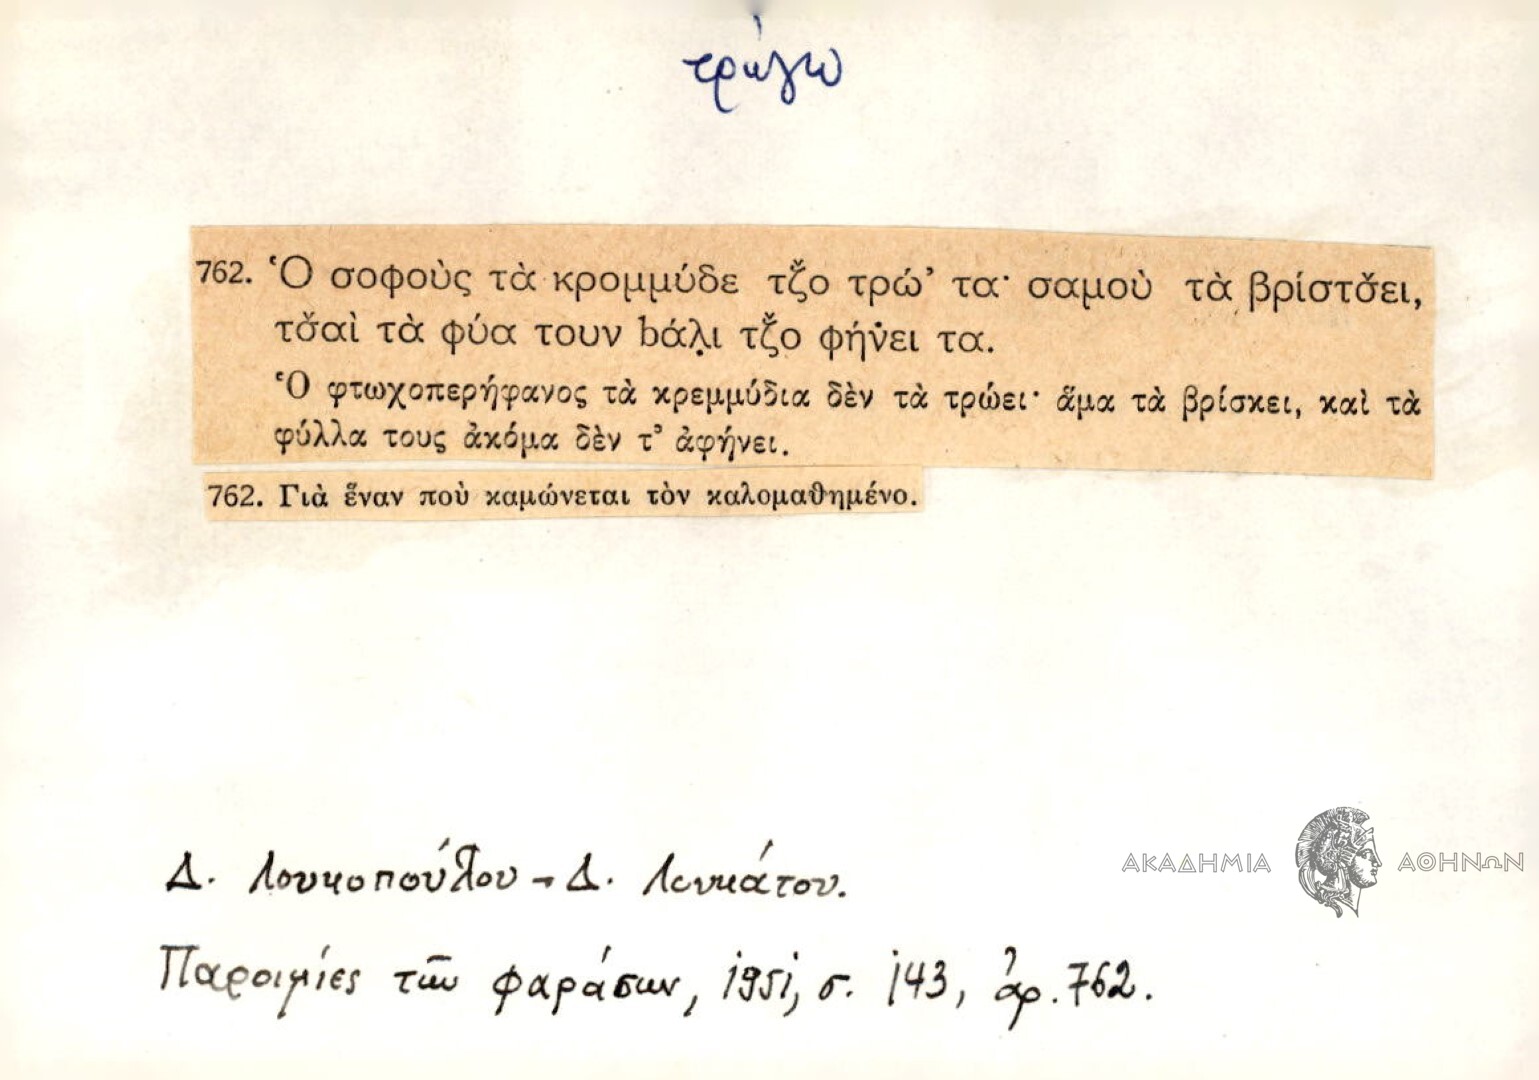 τρώγω
762. Ὁ σοφοὺς τὰ κρομμύδε τζ̌ο τρώ’ τα· σαμοὺ τὰ βρίστσ̌ει,
τσ̌αὶ τὰ φύα τουν bάλ̣ι τζ̌ο φήν̇ει τα.
Ὁ φτωχοπερήφανος τὰ κρεμμύδια δὲν τὰ τρώει· ἅμα τὰ βρίσκει, καὶ τὰ
φύλλα τους ἀκόμα δὲν τ’ ἀφήνει.
762. Γιὰ ἕναν ποὺ καμώνεται τὸν καλομαθημένο.
Δ. Λουκοπούλου - Δ. Λουκάτου.
Παροιμίες τῶν Φαράσων, 1951, σ. 143, ἀρ. 762.
ΑΚΑΔΗΜΙΑ ΑΘΗΝΩΝ